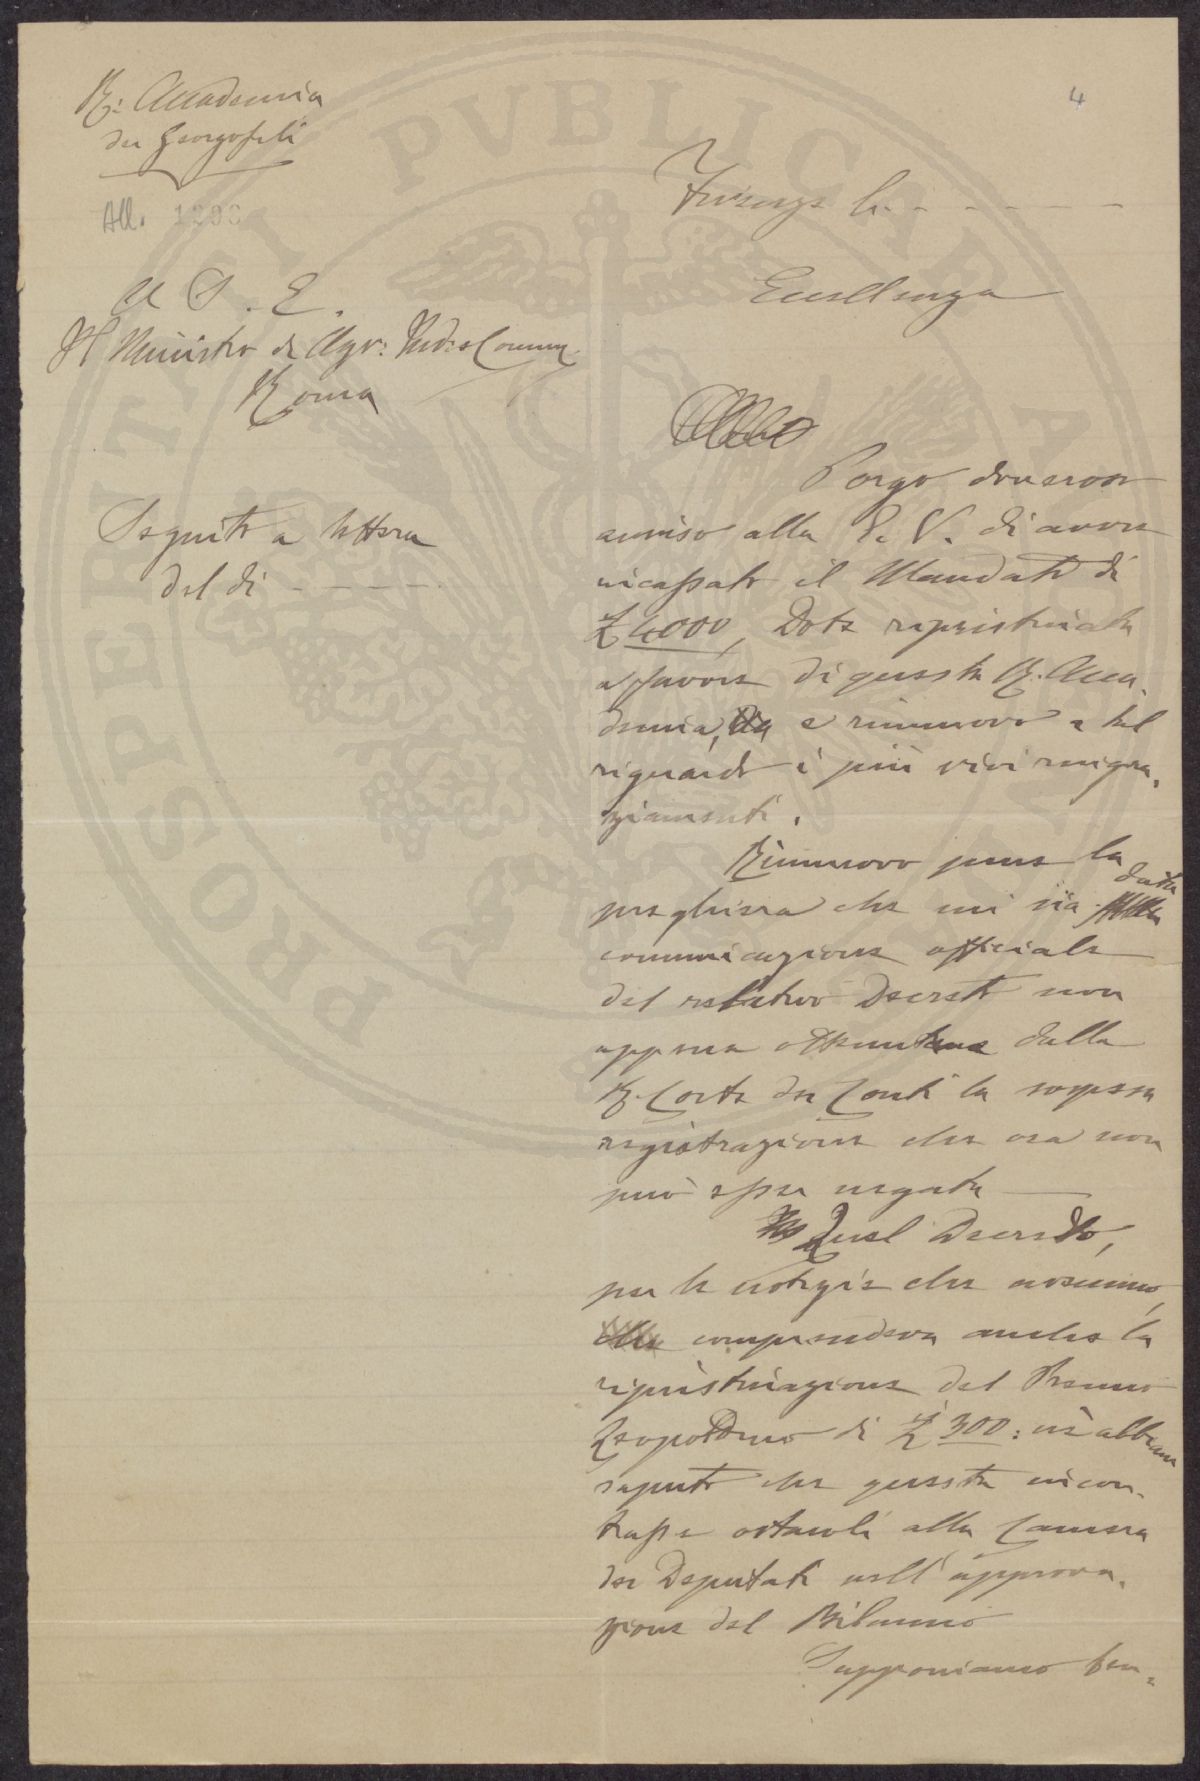 4
R: Accademia
dei Georgofili
All. 1200
A S. E.
Il Ministro di Agr: Ind: e Comm.
Roma
Seguito a lettera
del dì - - - -
Firenze li - - - - - -
Eccellenza
Porgo doveroso
avviso alla E. V. di avere
incassato il Mandato di
£ 4000, Dote ripristinata
a favore di questa R. Acca-
demia, e rinnuovo a tal
riguardo i più vivi ringra-
ziamenti.
Rinnuovo pure la
preghiera che mi sia data
comunicazione officiale
del relativo Decreto non
appena ottenuta dalla
R. Corte dei Conti la
registrazione che ora non
può esser negata
Quel Decreto,
per le notizie che avemmo,
comprendeva anche la
ripristinazione del Premio
Leopoldino di £ 300: nè abbiam
saputo che questa incon-
trasse ostacoli alla Camera
dei Deputati nell'approva-
zione del Bilancio
Supponiamo
PROSPERITATI PVBLICAE AVGENDAE